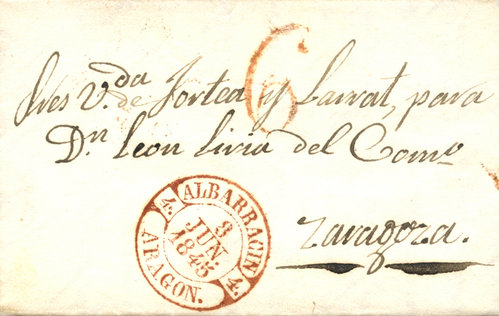 Sres V.da de Jortea y Larrat, para
6
Dn Leon Livia del Como
Zaragoza.
ALBARRACIN
4. 4.
3
JUN.
1845
ARAGON.